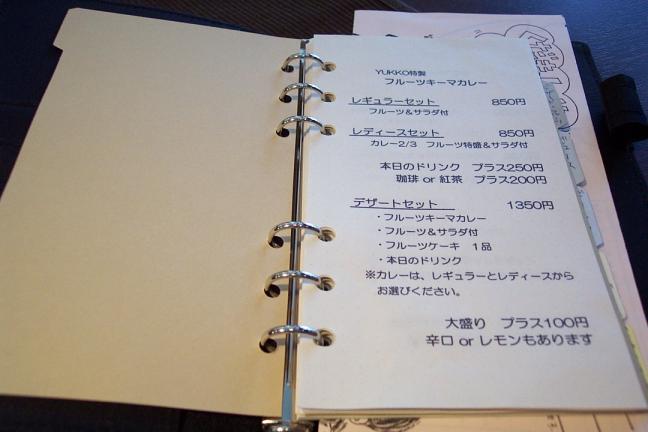 YUKKO特製
フルーツキーマカレー
レギュラーセット 850円
フルーツ&サラダ付
レディースセット 850円
カレー2/3 フルーツ特盛&サラダ付
本日のドリンク プラス250円
珈琲 or 紅茶 プラス200円
デザートセット 1350円
・フルーツキーマカレー
・フルーツ&サラダ付
・フルーツケーキ 1品
・本日のドリンク
※カレーは、レギュラーとレディースから
お選びください。
大盛り プラス100円
辛口 or レモンもあります